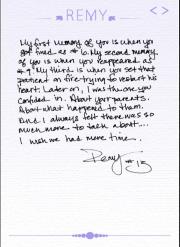 REMY
My first memory of you is when you
got fired as #6. My second memory
of you is when you reappeared as
#9. My third is when you set that
patient on fire trying to restart his
heart. Later on, I was the one you
confided in. About your parents.
About what happened to them.
And I always felt there was so
much more to talk about....
I wish we had more time.
Remy #13